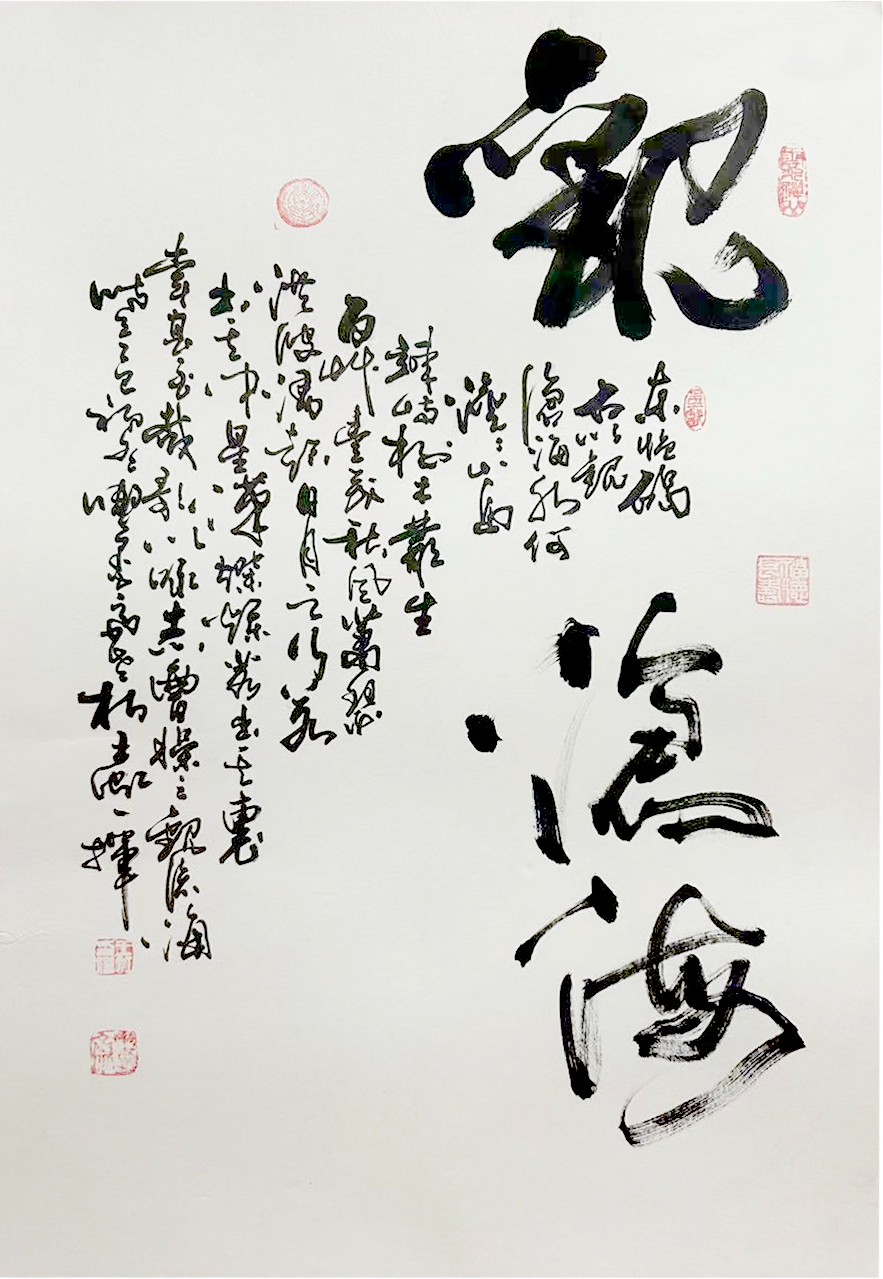 觀滄海
東臨碣
石以觀
滄海水何
澹〻山島
竦峙樹木叢生
百艸豐茂秋風蕭瑟
洪波湧起日月之行若
出其中星漢燦爛若出其裏
幸甚至哉歌以詠志曹操之觀滄海